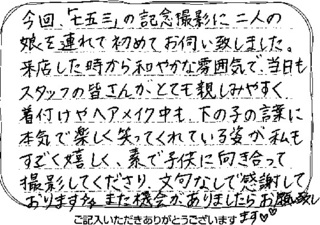 今回、「七五三」の記念撮影に二人の
娘を連れて初めてお伺い致しました。
来店した時から和やかな雰囲気で、当日も
スタッフの皆さんがとても親しみやすく
着付けやヘアメイク中も、下の子の言葉に
本気で楽しく笑ってくれている姿が私も
すごく嬉しく、素で子供に向き合って
撮影してくださり、文句なしで感謝して
おります。また機会がありましたらお願い致し
ます♡♡
ご記入いただきありがとうございます